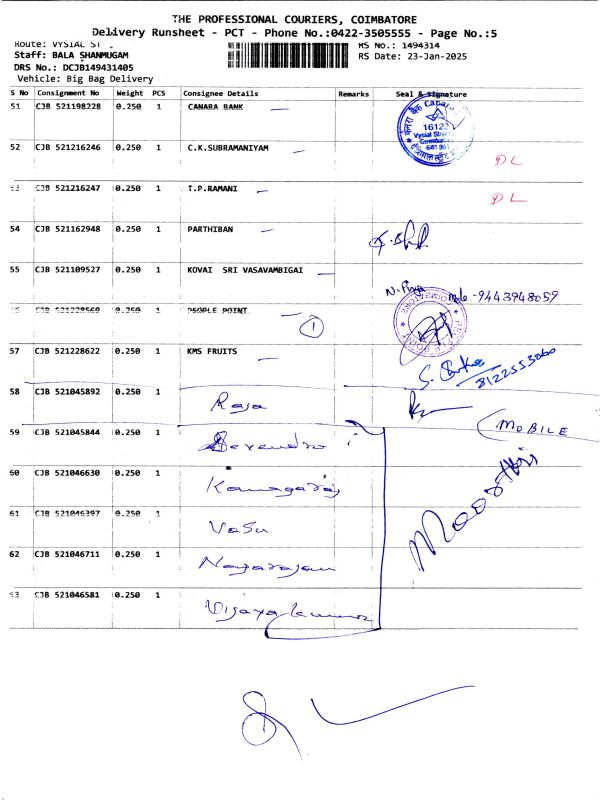 THE PROFESSIONAL COURIERS, COIMBATORE
Delivery Runsheet - PCT - Phone No.:0422-3505555 - Page No.:5
Route: VYSIAL ST
MS No.: 1494314
Staff: BALA SHANMUGAM
RS Date: 23-Jan-2025
DRS No.: DCJB149431405
Vehicle: Big Bag Delivery
S No Consignment No Weight PCS Consignee Details Remarks Seal & Signature
51 CJB 521198228 0.250 1 CANARA BANK
16123
52 CJB 521216246 0.250 1 C.K.SUBRAMANIYAM DL
53 CJB 521216247 0.250 1 T.P.RAMANI DL
54 CJB 521162948 0.250 1 PARTHIBAN
55 CJB 521109527 0.250 1 KOVAI SRI VASAVAMBIGAI
N. Priya Mob -9443948059
56 CJB 521228560 0.250 1 PEOPLE POINT 1
57 CJB 521228622 0.250 1 KMS FRUITS
8122553060
58 CJB 521045892 0.250 1 Raja
MOBILE
59 CJB 521045844 0.250 1
60 CJB 521046630 0.250 1 Kanagaraj
61 CJB 521046397 0.250 1 Vasu
Moorthi
62 CJB 521046711 0.250 1 Nagarajan
63 CJB 521046581 0.250 1 Vijayakumar